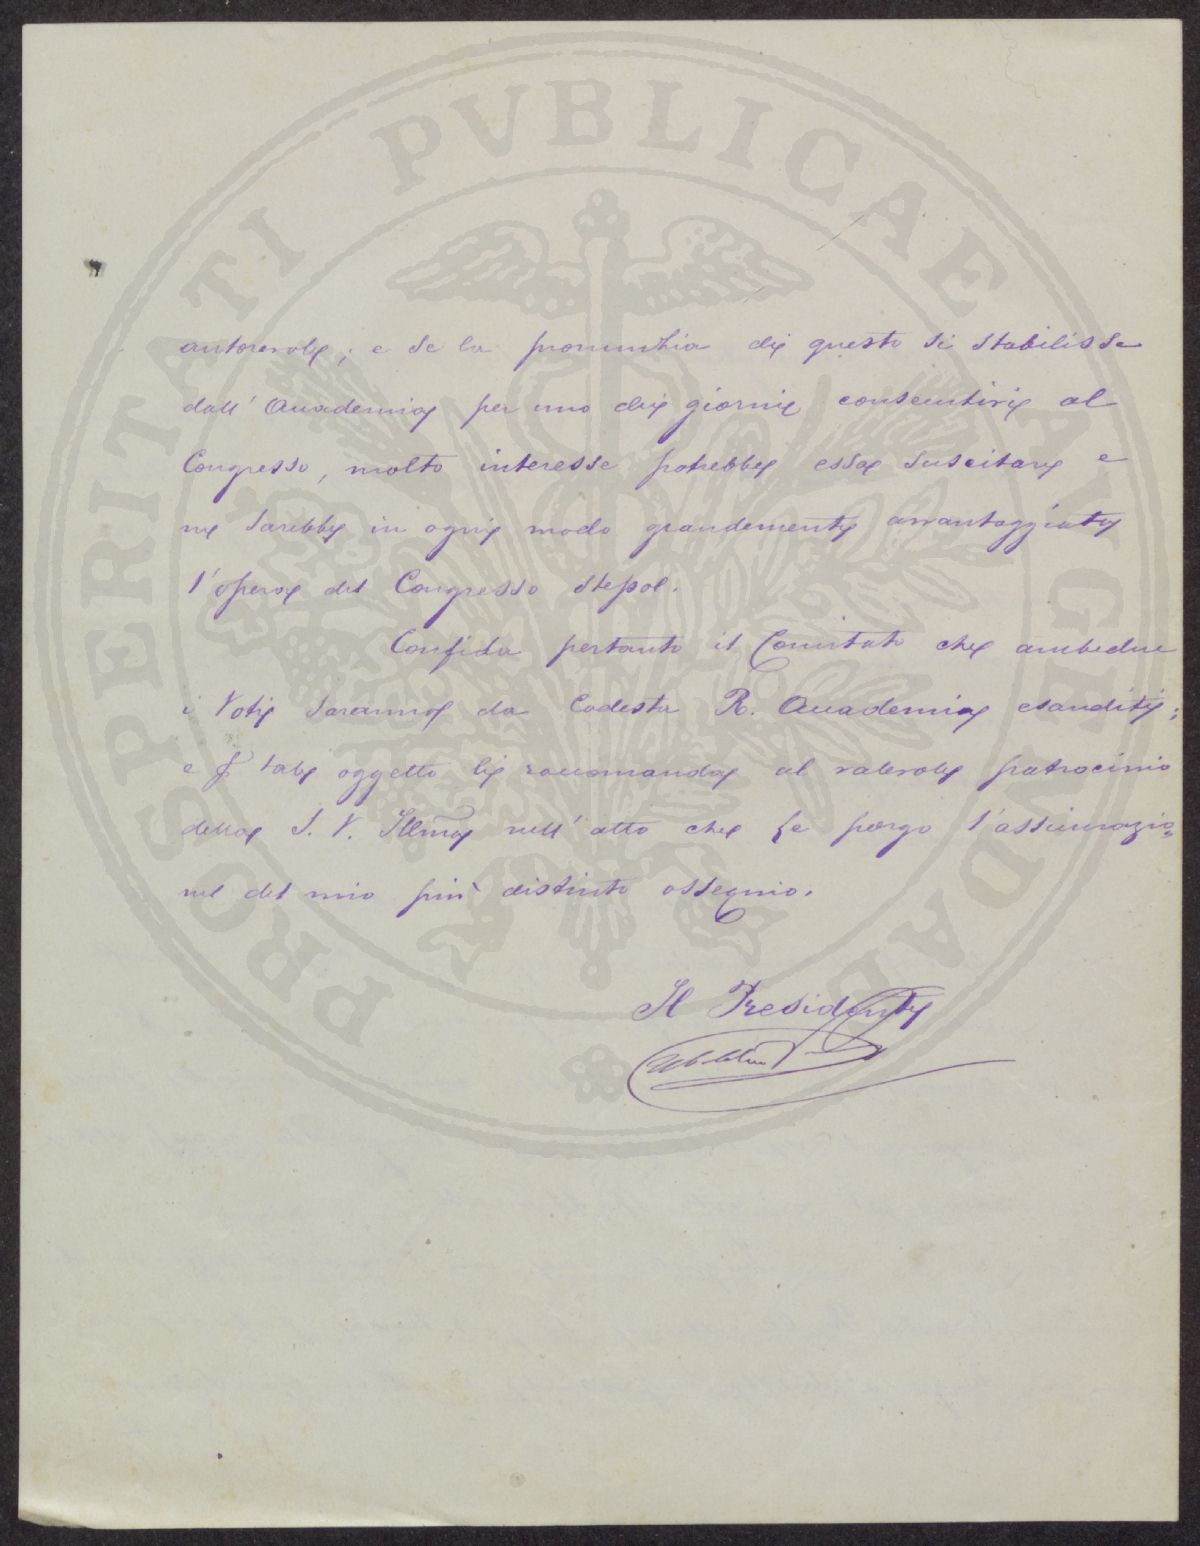 PROSPERITATI PVBLICAE AVGENDAE
autorevole; e se la pronunzia di questo si stabilisse
dall'Accademia per uno dei giorni consecutivi al
Congresso, molto interesse potrebbe essa suscitare e
ne sarebbe in ogni modo grandemente avvantaggiata
l'opera del Congresso stesso.
Confida pertanto il Comitato che ambedue
i voti saranno da Codesta R. Accademia esauditi;
e tale oggetto li raccomanda al valevole patrocinio
della S. V. Illma nell'atto che Le porgo l'assicurazio=
ne del mio più distinto ossequio.
Il Presidente